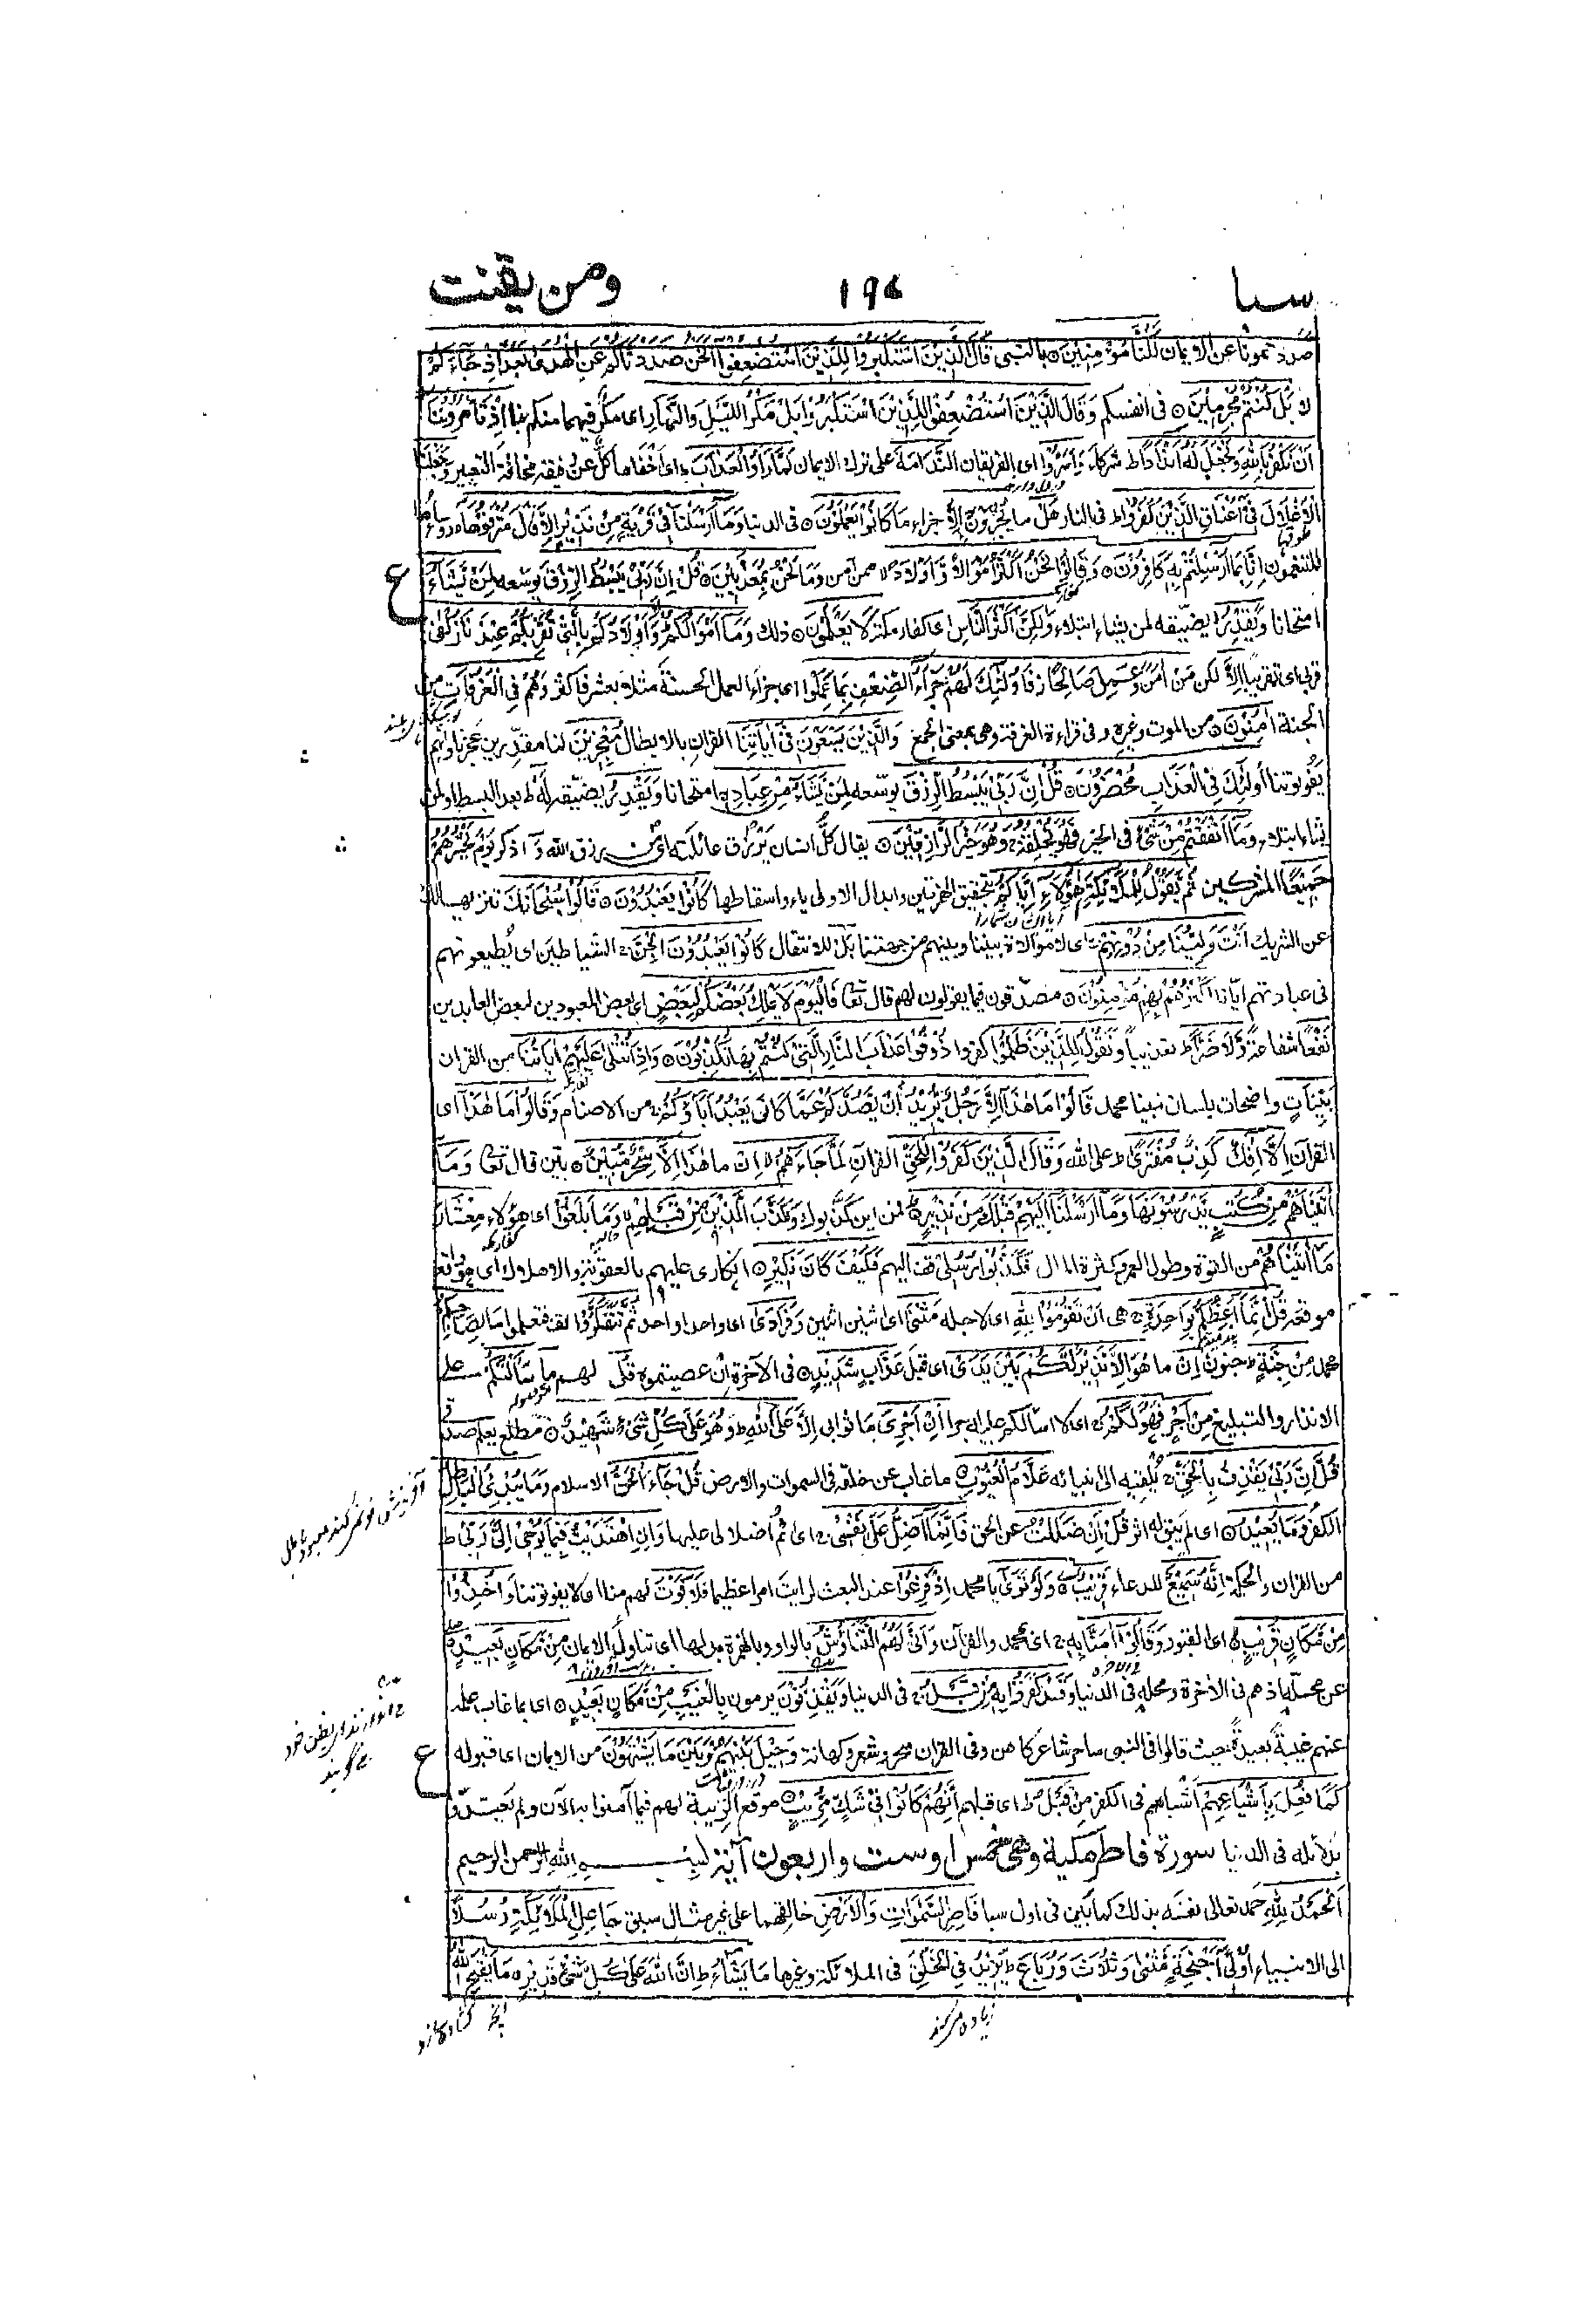 سبا ١٩٤ ومن يقنت
صددتمونا عن الايمان لَكُنَّا مُؤْمِنِيْنَ ۝ بالنبى قَالَ الَّذِيْنَ اسْتَكْبَرُوْا لِلَّذِيْنَ اسْتُضْعِفُوْا اَنَحْنُ صَدَدْنَاكُمْ عَنِ الْهُدٰى بَعْدَ اِذْ جَاءَكُمْ
لا بَلْ كُنْتُمْ مُجْرِمِيْنَ ۝ فى انفسكم وَقَالَ الَّذِيْنَ اسْتُضْعِفُوْا لِلَّذِيْنَ اسْتَكْبَرُوْا بَلْ مَكْرُ اللَّيْلِ وَالنَّهَارِ اى مكر فيهما منكم بنا اِذْ تَأْمُرُوْنَنَا
اَنْ نَكْفُرَ بِاللهِ وَنَجْعَلَ لَهُ اَنْدَادًا ط شركاء وَاَسَرُّوا اى الفريقان النَّدَامَةَ على ترك الايمان لَمَّا رَاَوُا الْعَذَابَ ط اى اخفاها كل عن رفيقه مخافة التعيير وَجَعَلْنَا
الْاَغْلَالَ فِىْ اَعْنَاقِ الَّذِيْنَ كَفَرُوْا ط فى النار هَلْ ما يُجْزَوْنَ اِلَّا جزاء مَا كَانُوْا يَعْمَلُوْنَ ۝ فى الدنيا وَمَا اَرْسَلْنَا فِىْ قَرْيَةٍ مِنْ نَذِيْرٍ اِلَّا قَالَ مُتْرَفُوْهَا رؤساءها
المتنعمون اِنَّا بِمَا اُرْسِلْتُمْ بِهِ كَافِرُوْنَ ۝ وَقَالُوْا نَحْنُ اَكْثَرُ اَمْوَالًا وَاَوْلَادًا ممن آمن وَمَا نَحْنُ بِمُعَذَّبِيْنَ ۝ قُلْ اِنَّ رَبِّىْ يَبْسُطُ الرِّزْقَ يوسعه لِمَنْ يَّشَاءُ
امتحانا وَيَقْدِرُ يضيّقه لمن يشاء ابتلاء وَلٰكِنَّ اَكْثَرَ النَّاسِ اى كفار مكة لَا يَعْلَمُوْنَ ۝ ذلك وَمَا اَمْوَالُكُمْ وَلَا اَوْلَادُكُمْ بِالَّتِىْ تُقَرِّبُكُمْ عِنْدَنَا زُلْفٰى
قربى اى تقريبا اِلَّا لكن مَنْ اٰمَنَ وَعَمِلَ صَالِحًا ز فَاُولٰئِكَ لَهُمْ جَزَاءُ الضِّعْفِ بِمَا عَمِلُوْا اى جزاء العمل الحسنة مثلا بعشر فاكثر وَهُمْ فِى الْغُرُفَاتِ من
الجنة اٰمِنُوْنَ ۝ من الموت وغيره وفى قراءة الغرفة وهى بمعنى الجمع وَالَّذِيْنَ يَسْعَوْنَ فِىْ اٰيَاتِنَا القران بالابطال مُعْجِزِيْنَ لنا مقدرين عجزنا وانهم
يفوتوننا اُولٰئِكَ فِى الْعَذَابِ مُحْضَرُوْنَ ۝ قُلْ اِنَّ رَبِّىْ يَبْسُطُ الرِّزْقَ يوسّعه لِمَنْ يَّشَاءُ مِنْ عِبَادِهِ امتحانا وَيَقْدِرُ يضيّقه لَهُ ط بعد البسط او لمن
يشاء ابتلاء وَمَا اَنْفَقْتُمْ مِنْ شَىْءٍ فى الخير فَهُوَ يُخْلِفُهُ ج وَهُوَ خَيْرُ الرَّازِقِيْنَ ۝ يقال كل انسان يرزق عائلته اى من رزق الله وَ اذكر يَوْمَ يَحْشُرُهُمْ
جَمِيْعًا المشركين ثُمَّ يَقُوْلُ لِلْمَلٰئِكَةِ اَهٰؤُلَاءِ اِيَّاكُمْ بتحقيق الهمزتين وابدال الاولى ياء واسقاطها كَانُوْا يَعْبُدُوْنَ ۝ قَالُوْا سُبْحَانَكَ تنزيها لك
عن الشريك اَنْتَ وَلِيُّنَا مِنْ دُوْنِهِمْ ج اى لا موالاة بيننا وبينهم من جهتنا بَلْ للانتقال كَانُوْا يَعْبُدُوْنَ الْجِنَّ ج الشياطين اى يطيعونهم
فى عبادتهم ايّانا اَكْثَرُهُمْ بِهِمْ مُؤْمِنُوْنَ ۝ مصدّقون فيما يقولون لهم قال تعا فَالْيَوْمَ لَا يَمْلِكُ بَعْضُكُمْ لِبَعْضٍ اى بعض المعبودين لبعض العابدين
نَفْعًا شفاعة وَّلَا ضَرًّا ط تعذيبا وَنَقُوْلُ لِلَّذِيْنَ ظَلَمُوْا كفروا ذُوْقُوْا عَذَابَ النَّارِ الَّتِىْ كُنْتُمْ بِهَا تُكَذِّبُوْنَ ۝ وَاِذَا تُتْلٰى عَلَيْهِمْ اٰيَاتُنَا من القران
بَيِّنَاتٍ واضحات بلسان نبينا محمد قَالُوْا مَا هٰذَا اِلَّا رَجُلٌ يُرِيْدُ اَنْ يَصُدَّكُمْ عَمَّا كَانَ يَعْبُدُ اٰبَاؤُكُمْ ج من الاصنام وَقَالُوْا مَا هٰذَا اى
القران اِلَّا اِفْكٌ كذب مُفْتَرًى ط على الله وَقَالَ الَّذِيْنَ كَفَرُوْا لِلْحَقِّ القران لَمَّا جَاءَهُمْ لا اِنْ ما هٰذَا اِلَّا سِحْرٌ مُبِيْنٌ ۝ بيّن قال تعا وَمَا
اٰتَيْنَاهُمْ مِنْ كُتُبٍ يَدْرُسُوْنَهَا وَمَا اَرْسَلْنَا اِلَيْهِمْ قَبْلَكَ مِنْ نَذِيْرٍ فمن اين كذّبوك وَكَذَّبَ الَّذِيْنَ مِنْ قَبْلِهِمْ وَمَا بَلَغُوْا اى هؤلاء مِعْشَارَ
مَا اٰتَيْنَاهُمْ من القوة وطول العمر وكثرة المال فَكَذَّبُوْا رُسُلِىْ قف اليهم فَكَيْفَ كَانَ نَكِيْرِ ۝ انكارى عليهم بالعقوبة والاهلاك اى هو واقع
موقعه قُلْ اِنَّمَا اَعِظُكُمْ بِوَاحِدَةٍ ج هى اَنْ تَقُوْمُوْا لِلّٰهِ اى لاجله مَثْنٰى اى اثنين اثنين وَفُرَادٰى اى واحدا واحدا ثُمَّ تَتَفَكَّرُوْا قف فتعلموا مَا بِصَاحِبِكُمْ
محمد مِنْ جِنَّةٍ ط جنون اِنْ ما هُوَ اِلَّا نَذِيْرٌ لَكُمْ بَيْنَ يَدَىْ اى قبل عَذَابٍ شَدِيْدٍ ۝ فى الآخرة ان عصيتموه قُلْ لهم مَا سَاَلْتُكُمْ على
الانذار والتبليغ مِنْ اَجْرٍ فَهُوَ لَكُمْ ط اى لا اسألكم عليه اجرا اِنْ اَجْرِىَ ما ثوابى اِلَّا عَلَى اللهِ ج وَهُوَ عَلٰى كُلِّ شَىْءٍ شَهِيْدٌ ۝ مطلع يعلم صدقى
قُلْ اِنَّ رَبِّىْ يَقْذِفُ بِالْحَقِّ ج يلقيه الى انبيائه عَلَّامُ الْغُيُوْبِ ۝ ما غاب عن خلقه فى السموات والارض قُلْ جَاءَ الْحَقُّ الاسلام وَمَا يُبْدِئُ الْبَاطِلُ
الكفر وَمَا يُعِيْدُ ۝ اى لم يبق له اثر قُلْ اِنْ ضَلَلْتُ عن الحق فَاِنَّمَا اَضِلُّ عَلٰى نَفْسِىْ ج اى اثم اضلالى عليها وَاِنِ اهْتَدَيْتُ فَبِمَا يُوْحِىْ اِلَىَّ رَبِّىْ ط
من القران والحكمة اِنَّهُ سَمِيْعٌ للدعاء قَرِيْبٌ ۝ وَلَوْ تَرٰى يا محمد اِذْ فَزِعُوْا عند البعث لرايت امرا عظيما فَلَا فَوْتَ لهم منا اى لا يفوتوننا وَاُخِذُوْا
مِنْ مَكَانٍ قَرِيْبٍ ۝ اى القبور وَقَالُوْا اٰمَنَّا بِهِ ج اى محمد والقرآن وَاَنّٰى لَهُمُ التَّنَاوُشُ بالواو وبالهمزة بدلها اى تناول الايمان مِنْ مَكَانٍ بَعِيْدٍ
عن محله اذ هم فى الآخرة ومحله فى الدنيا وَقَدْ كَفَرُوْا بِهِ مِنْ قَبْلُ ج فى الدنيا وَيَقْذِفُوْنَ يرمون بِالْغَيْبِ مِنْ مَكَانٍ بَعِيْدٍ ۝ اى بما غاب علمه
عنهم غيبة بعيدة حيث قالوا فى النبى ساحر شاعر كاهن وفى القران سحر وشعر وكهانة وَحِيْلَ بَيْنَهُمْ وَبَيْنَ مَا يَشْتَهُوْنَ من الايمان اى قبوله
كَمَا فُعِلَ بِاَشْيَاعِهِمْ اشباههم فى الكفر مِنْ قَبْلُ ط اى قبلهم اِنَّهُمْ كَانُوْا فِىْ شَكٍّ مُرِيْبٍ ۝ موقع الريبة لهم فيما آمنوا به الآن ولم يعتدّوا
بدلائله فى الدنيا سورة فاطر مكية وهى خمس او ست واربعون آية بسم الله الرحمن الرحيم
اَلْحَمْدُ لِلّٰهِ حمد تعالى نفسه بذلك كما بُيّن فى اول سبا فَاطِرِ السَّمٰوَاتِ وَالْاَرْضِ خالقهما على غير مثال سبق جَاعِلِ الْمَلَائِكَةِ رُسُلًا
الى الانبياء اُولِىْ اَجْنِحَةٍ مَثْنٰى وَثُلَاثَ وَرُبَاعَ ط يَزِيْدُ فِى الْخَلْقِ فى الملائكة وغيرها مَا يَشَاءُ ط اِنَّ اللهَ عَلٰى كُلِّ شَىْءٍ قَدِيْرٌ ۝ مَا يَفْتَحِ اللهُ